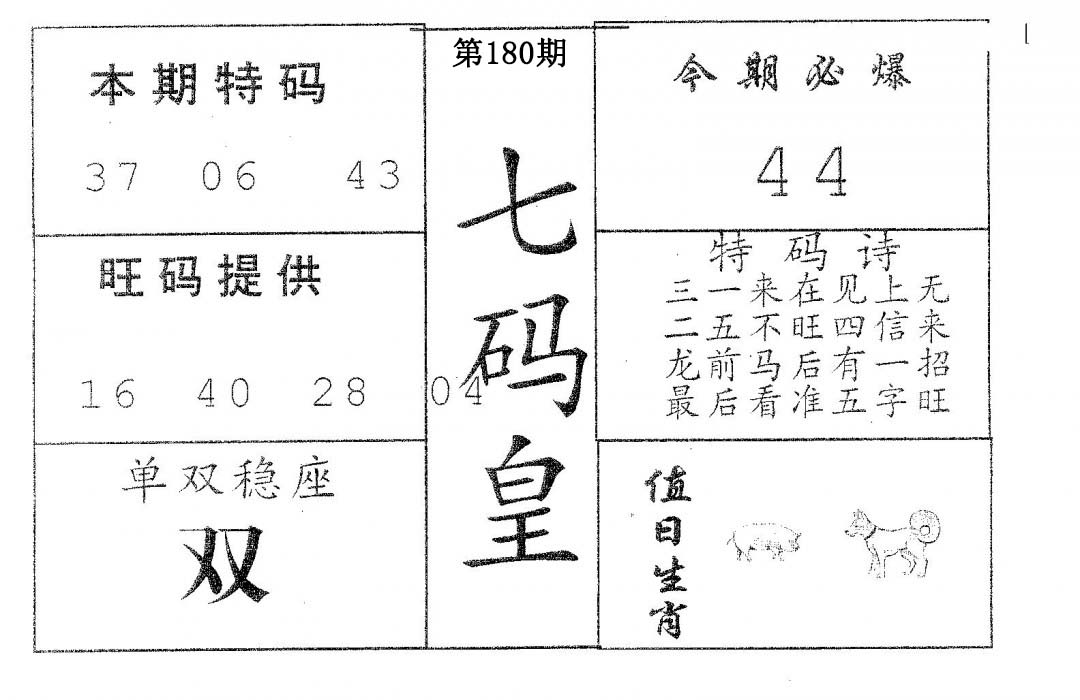 第180期
七码皇
本期特码
37 06 43
旺码提供
16 40 28 04
单双稳座
双
今期必爆
44
特码诗
三一来在见上无
二五不旺四信来
龙前马后有一招
最后看准五字旺
值日生肖